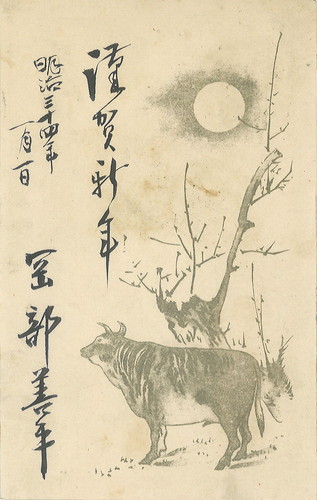 謹賀新年
明治三十四年
一月一日
岡部善平